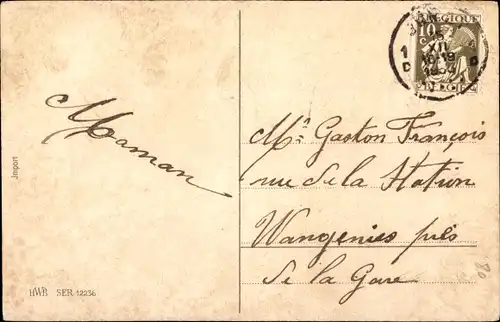 BELGIQUE
10
C
XII
1
D
D
BELGIE
Maman
Mr Gaston François
rue de la Station
Wangenies près
de la Gare
Import
HWB SER 12236